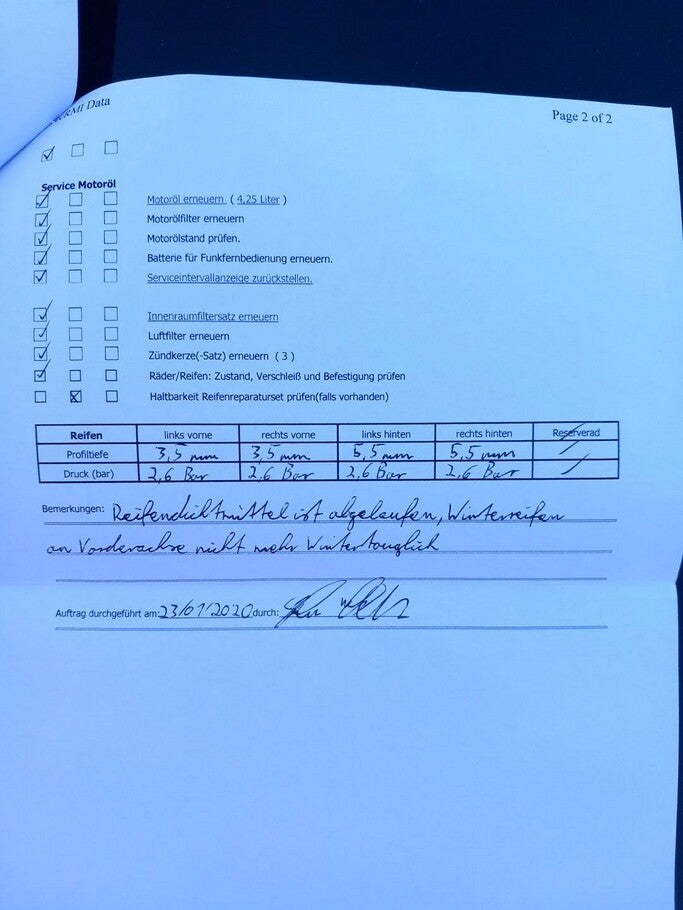 Data
Page 2 of 2
Service Motoröl
Motoröl erneuern ( 4,25 Liter )
Motorölfilter erneuern
Motorölstand prüfen.
Batterie für Funkfernbedienung erneuern.
Serviceintervallanzeige zurückstellen.
Innenraumfiltersatz erneuern
Luftfilter erneuern
Zündkerze(-Satz) erneuern ( 3 )
Räder/Reifen: Zustand, Verschleiß und Befestigung prüfen
Haltbarkeit Reifenreparaturset prüfen(falls vorhanden)
Reifen links vorne rechts vorne links hinten rechts hinten Reserverad
Profiltiefe 3,5 mm 3,5 mm 5,5 mm 5,5 mm
Druck (bar) 2,6 Bar 2,6 Bar 2,6 Bar 2,6 Bar
Bemerkungen: Reifendichtmittel ist abgelaufen, Winterreifen
an Vorderachse nicht mehr Wintertauglich
Auftrag durchgeführt am: 23/01/2020 durch: